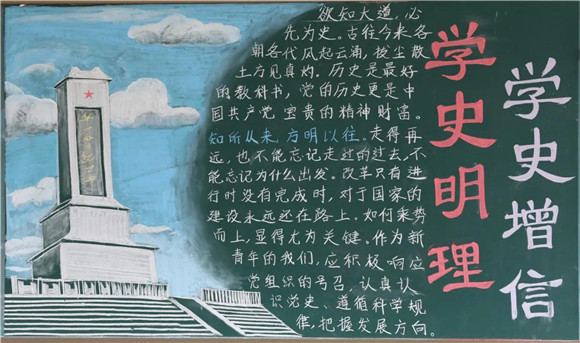 欲知大道,必
先为史。古往今来各
朝各代风起云涌,尘散
土方见真灼。历史是最好
的教科书,党的历史更是中
国共产党宝贵的精神财富。
知所从来,方明以往。走得再
远,也不能忘记走过的过去,不
能忘记为什么出发。改革只有进
行时没有完成时,对于国家的
建设永远还在路上。如何乘势
而上,显得尤为关键。作为新
青年的我们,应积极响应
党组织的号召,认真认
识党史、遵循科学规
律,把握发展方向。
学史明理
学史增信